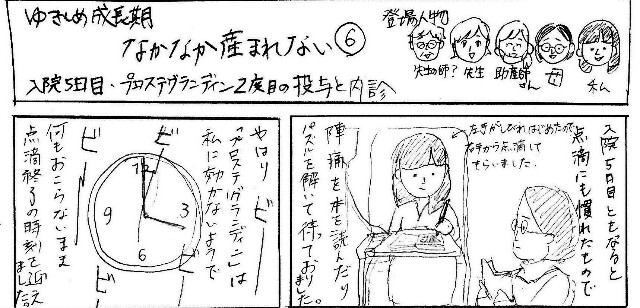 ゆきしめ成長期
なかなか産まれない⑥
入院5日目・プロステグランディン2度目の投与と内診
登場人物
先生の師?
先生
助産師さん
母
私
入院5日目ともなると
点滴にも慣れたもので
左手がしびれはじめたので
右手から点滴して
もらいました。
陣痛を本を読んだり
パズルを解いて待っておりました。
やはり
「プロステグランディン」は
私に効かないようで
ビー
ビー
ビー
ビー
12
3
6
9
何もおこらないまま
点滴終了の時刻を
迎えました